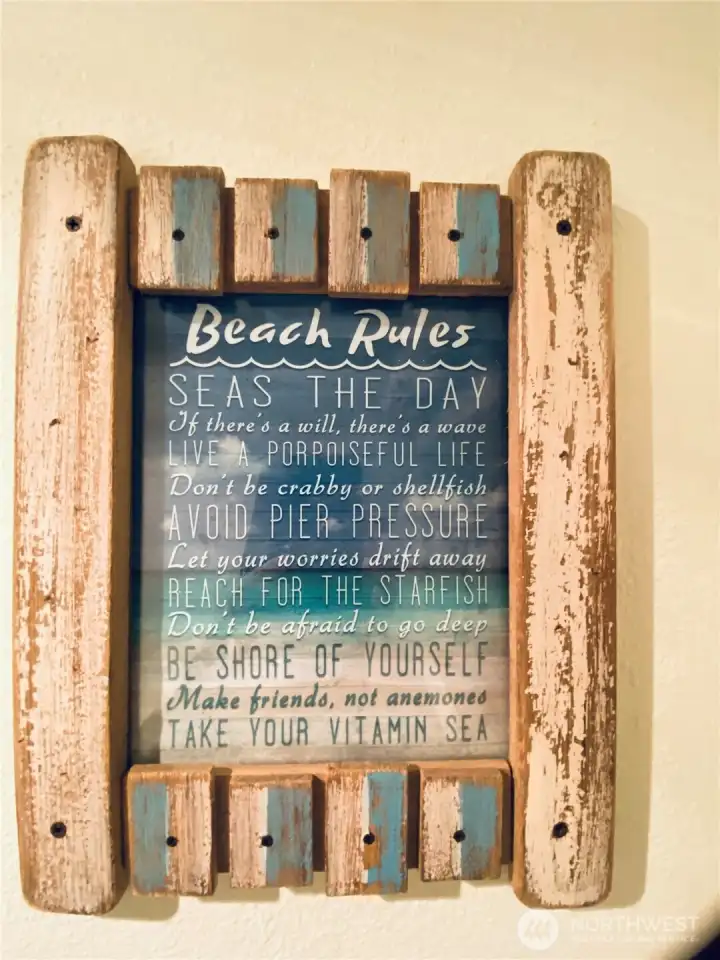 Beach Rules
SEAS THE DAY
If there's a will, there's a wave
LIVE A PORPOISEFUL LIFE
Don't be crabby or shellfish
AVOID PIER PRESSURE
Let your worries drift away
REACH FOR THE STARFISH
Don't be afraid to go deep
BE SHORE OF YOURSELF
Make friends, not anemones
TAKE YOUR VITAMIN SEA
NORTHWEST